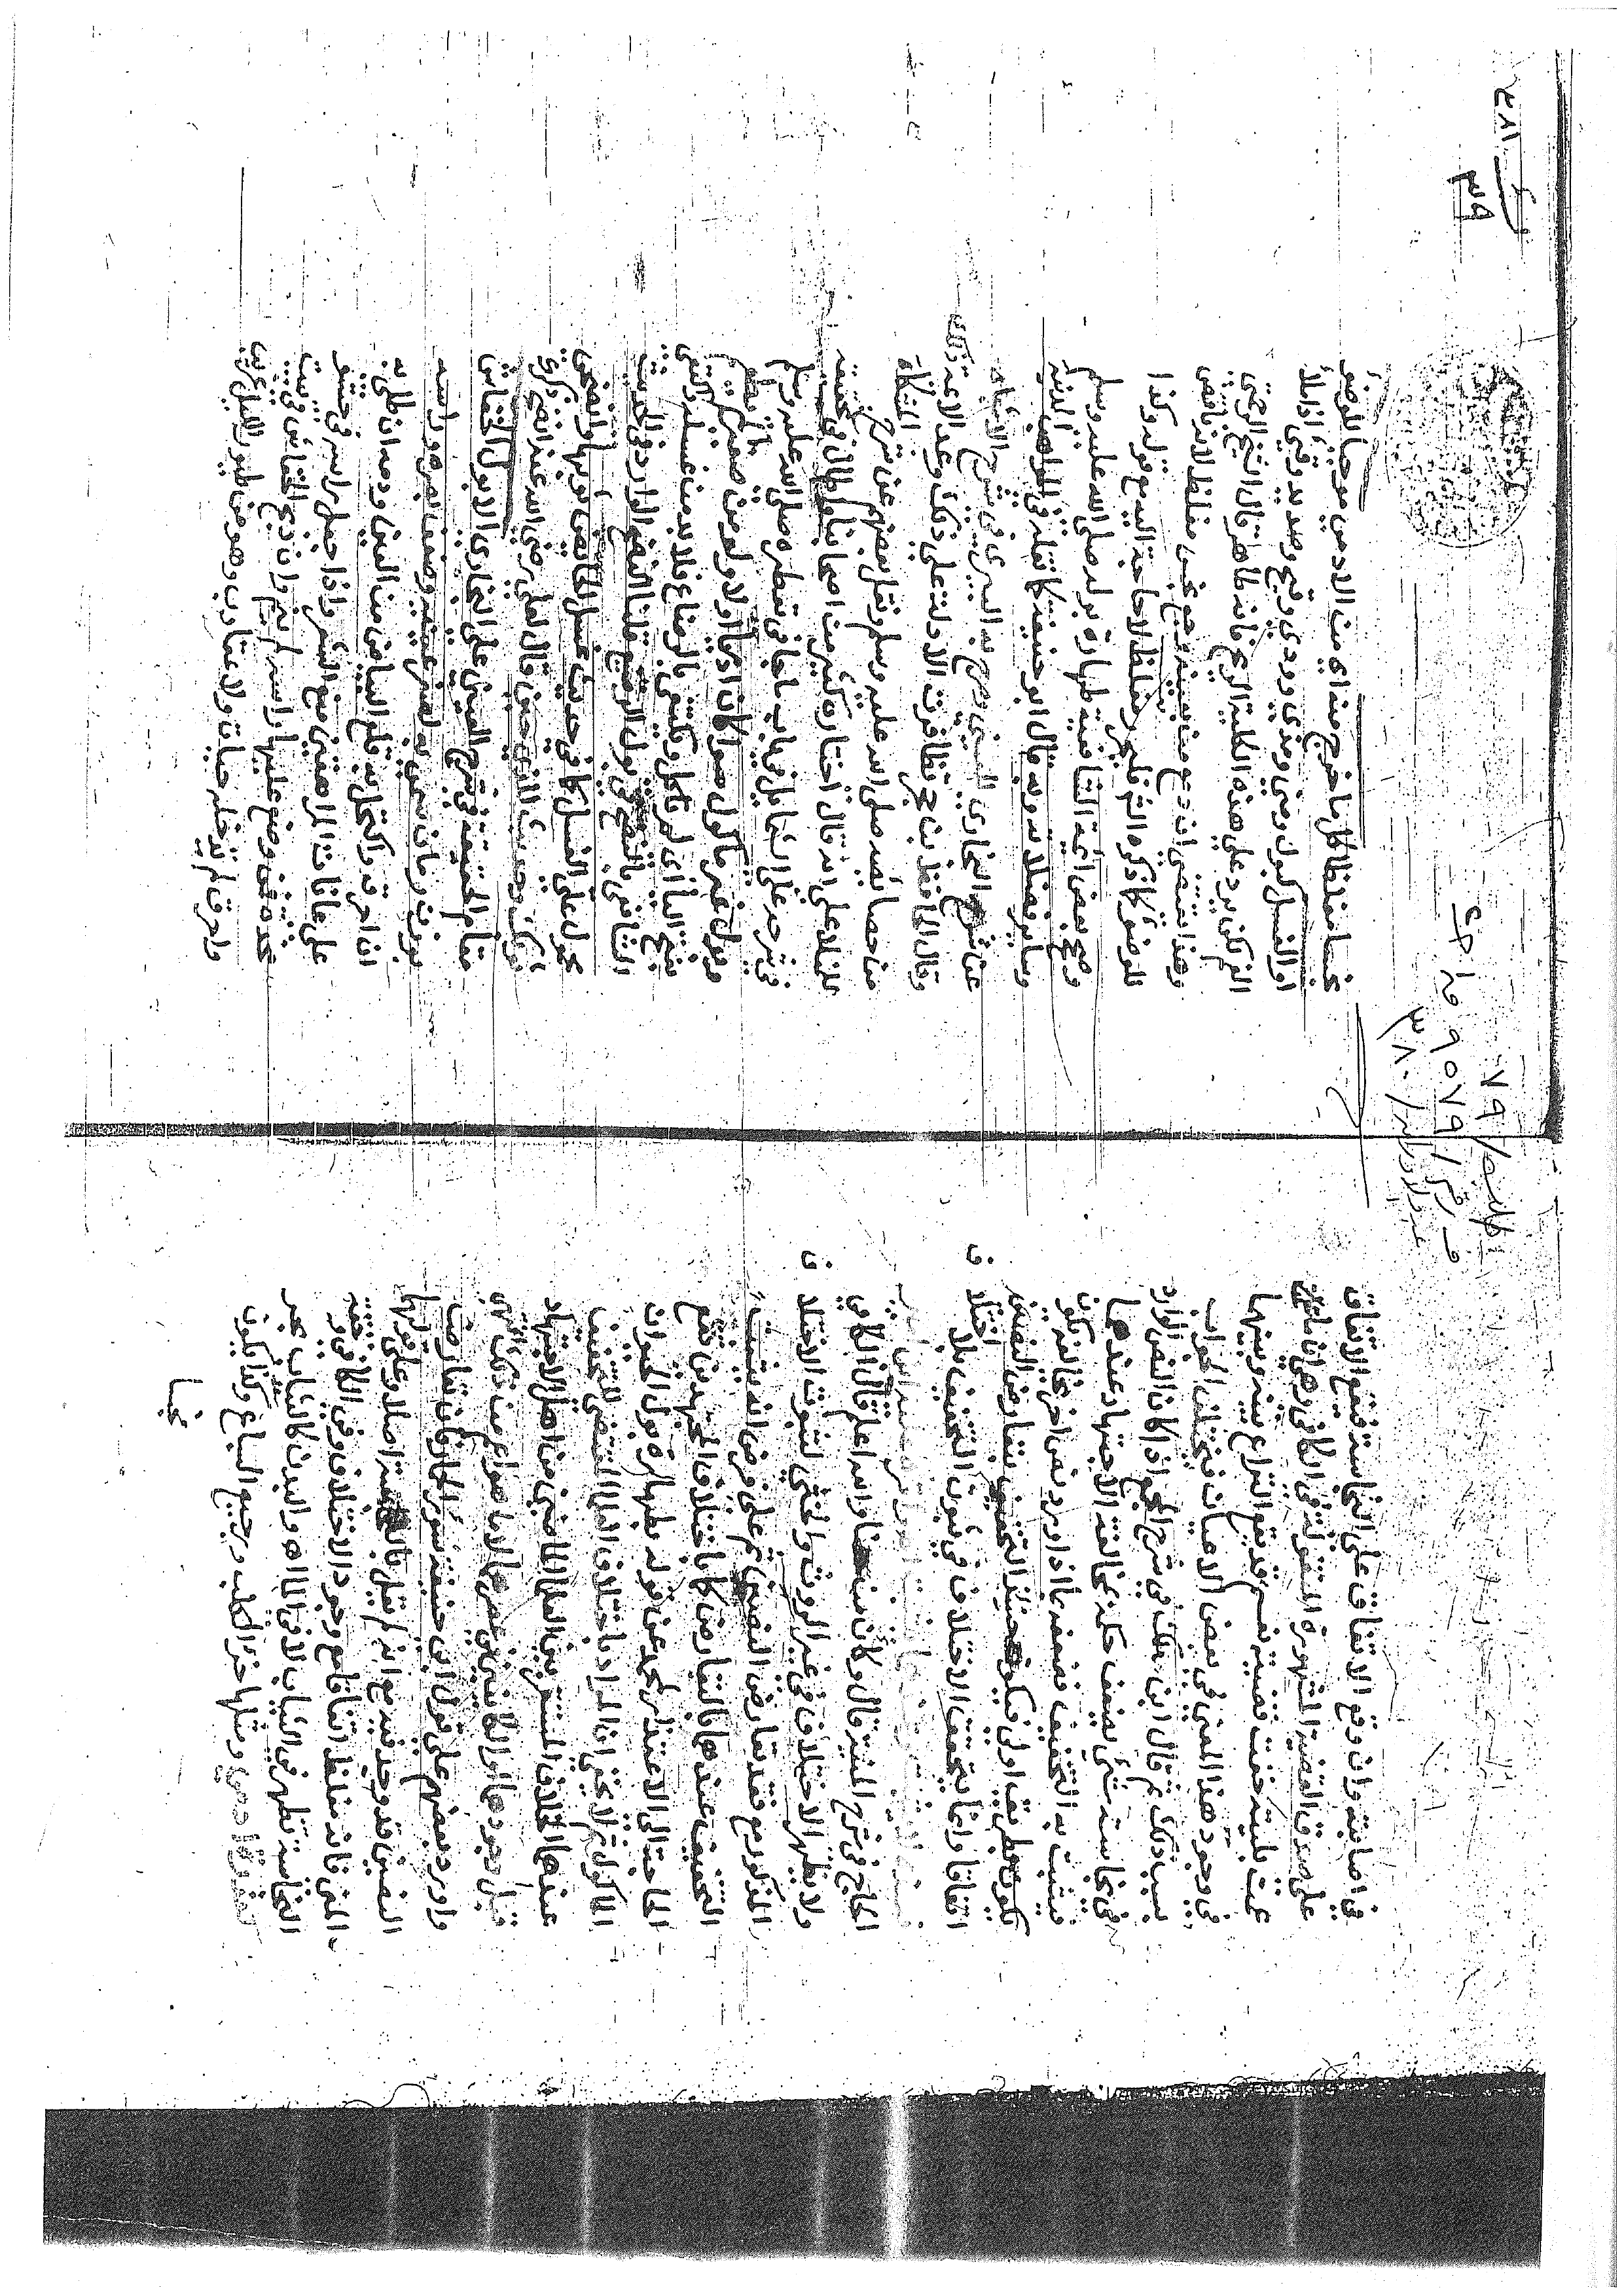 في اصابته وان وقع الاتفاق على النجاسة فتقع الاتفاق
على صدق القضية المشهورة المنقولة في الكافي وهي ان ما
عمت بليته خفت قضيته نعم قد يقع النزاع بينه وبينهما
في وجود هذا المعنى في بعض الاعيان فيختلف الجواب
بسبب ذلك ثم قال ابن ملك في شرح المجمع اذا كان النص الوارد
في نجاسة شيء يضعف حكمه بمخالفة الاجتهاد عندهما
فيثبت به التخفيف فضعفه بما اذا ورد نص اخر يخالفه يكون
بطريق اولى فيكون حينئذ التخفيف بتعارض النصين
اتفاقا وانما يتحقق الاختلاف في ثبوت التخفيف
الحاج في شرح المنية قال وكان من هنا والله اعلم قال في الكافي
ولا يظهر الاختلاف في غير الروث والخثي لثبوت الاختلاف
المذكور مع فقد تعارض النصين ثم على فرض انه يثبت
التخفيف عندهما بالتعارض كما باختلاف المجتهدين تقع
الحاجة الى الاعتذار لمحمد عن قوله بطهارة بول الحيوان
الماكول ثم لا يخفى ان المراد باختلاف العلماء المقتضي للتخفيف
عندهما الخلاف المستقر بين العلماء الماضين من اهل الاجتهاد
قبل وجودهما او الكائنين في عصرهما لا ما هو اعم من ذلك انتهى
واورد بعضهم على قول ابي حنيفة سؤر الحمار فان تعارض
النصين قد وجد فيه مع انه لم يقل بالنجاسة اصلا وعلى قولهما
المني فانه مغلظ اتفاقا مع وجود الاختلاف وفي الكافي وخفة
النجاسة تظهر في الثياب لا في الماء اه والبدن كالثياب بحر
ادمي ومثلها خرء الكلب ورجيع السباع وكذا يكون
نجسا
٣٩
نجسا مغلظا كل ما خرج منه اي من الادمي موجبا للوضوء
او الغسل كبول ومني ومذي وودي وقيح وصديد وقيء
الفم لكن يرد على هذه الكلية الريح فانه طاهر قال الشيخ الرحمتي
وهذا يقتضي ان مغلظ لانه ناقض
للوضوء كما ذكره فليحرر مغلظ لا حاجة اليه مع قوله وكذا
وصحح بعض ائمة الشافعية طهارة بوله صلى الله عليه وسلم
وسائر فضلاته وبه قال ابو حنيفة كما نقله في المواهب اللدنية
عن شرح البخاري للعيني وصرح به البيري في شرح الاشباه
وقال الحافظ ابن حجر تظافرت الادلة على ذلك وعد الائمة ذلك
من خصائصه صلى الله عليه وسلم ونقل بعضهم عن شرح المشكاة
لملا علي انه قال اختاره كثير من اصحابنا واطال في تحقيقه
في شرحه على الشمائل في باب ما جاء في تعطره صلى الله عليه وسلم
وبول غير ماكول سوا كان ادميا او لا ولو من صغير لم يطعم
بفتح الياء اي لم ياكل وكتفى بالرضاع فلا بد من غسله واكتفى
الشافعي بالنضح في بول الرضيع قلنا النضح الوارد في الحديث
محمول على الغسل كما في حديث غسل الحائض ثوبها وانضحي
فرجك وحديث المذي حين قال لعلي رضي الله عنه انضح فرجك
وتمام تحقيقه في شرح العيني على البخاري الا بول الخفاش
بوزن رمان سمي به لصغر عينيه وضعف بصره وراسه
ان احرق واكتحل به قلع البياض من العين ودمه ان طلي به
على عانات المراهقين منع الشعر واذا جعل راسه في حشو
مخدة فمن وضع عليها راسه لم ينم وان ذبح الخفاش في بيت
واحرق لم تدخله حيات ولا عقارب وهو من طيور الليل